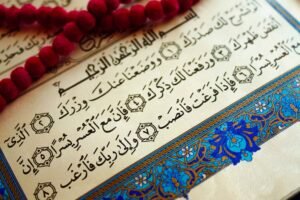 بِسْمِ اللَّهِ الرَّحْمَٰنِ الرَّحِيمِ
أَلَمْ نَشْرَحْ لَكَ صَدْرَكَ ١ وَوَضَعْنَا عَنكَ وِزْرَكَ ٢ الَّذِي
أَنقَضَ ظَهْرَكَ ٣ وَرَفَعْنَا لَكَ ذِكْرَكَ ٤ فَإِنَّ مَعَ الْعُسْرِ يُسْرًا ٥ إِنَّ
مَعَ الْعُسْرِ يُسْرًا ٦ فَإِذَا فَرَغْتَ فَانصَبْ ٧ وَإِلَىٰ رَبِّكَ فَارْغَب ٨